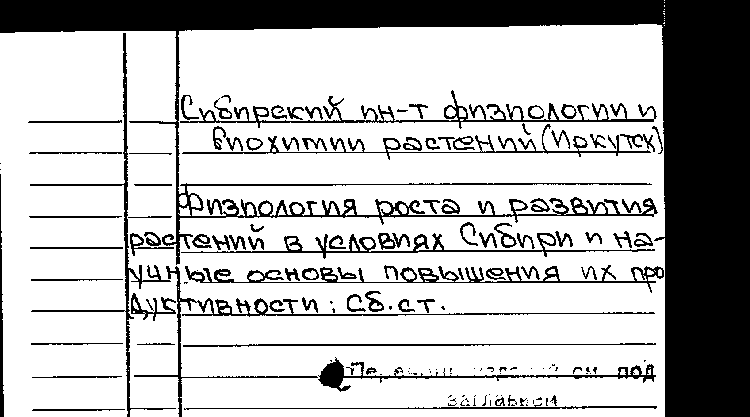 Сибирский ин-т физиологии и
биохимии растений (Иркутск)
Физиология роста и развития
растений в условиях Сибири и на-
учные основы повышения их про
дуктивности: Сб. ст.
см. под
заглавием